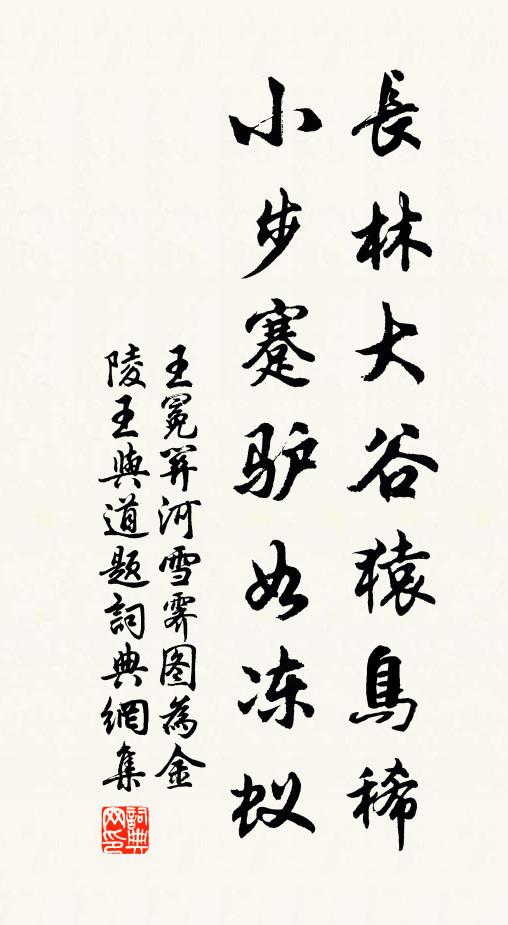 長林大谷猿鳥稀
小步蹇驴如冻蚁
王冕關河雪霽图為金
陵王與道题詞典網集
詞典
网印